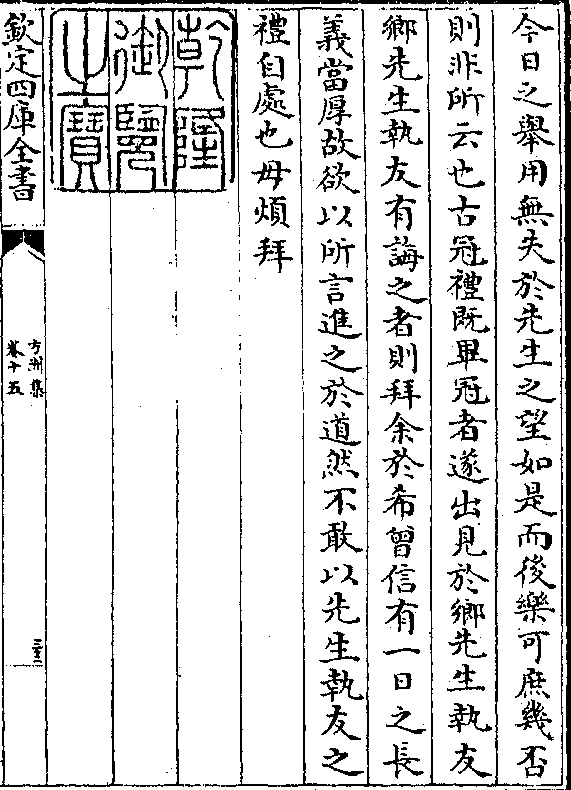 今日之舉用無失於先生之望如是而後樂可庶幾否
則非所云也古冠禮既畢冠者遂出見於鄉先生執友
鄉先生執友有誨之者則拜余於希曾信有一日之長
義當厚故欲以所言進之於道然不敢以先生執友之
禮自處也毋煩拜
乾隆
御覽
之寶
欽定四庫全書
方洲集
卷十五